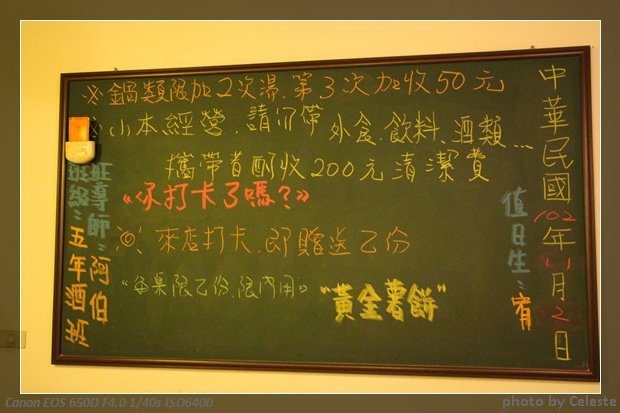 ※鍋類限加2次湯,第3次加收50元
※小本經營,請勿帶外食、飲料、酒類…
攜帶者酌收200元清潔費
《你打卡了嗎?》
◎、來店打卡,即贈送乙份
《每桌限乙份,限內用》"黃金薯餅"
中華民國102年11月2日
值日生:宥
班導師:阿伯
班級:五年酒班
Canon EOS 650D F4.0 1/40s ISO6400
photo by Celeste